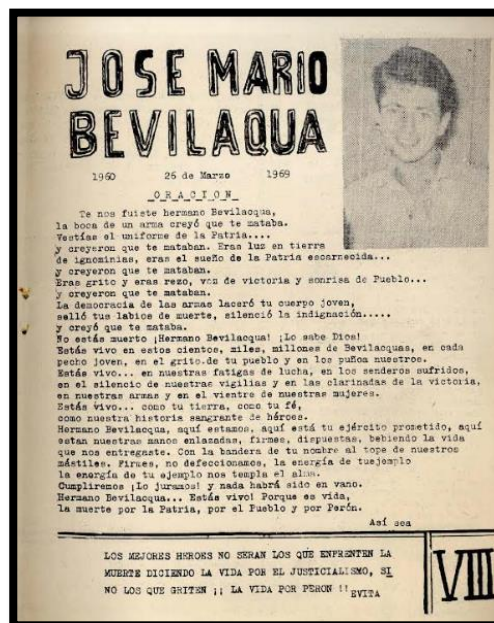 JOSE MARIO
BEVILAQUA
1960 26 de Marzo 1969
ORACION
Te nos fuiste hermano Bevilacqua,
la boca de un arma creyó que te mataba.
Vestías el uniforme de la Patria....
y creyeron que te mataban. Eras luz en tierra
de ignominias, eras el sueño de la Patria escarnecida...
y creyeron que te mataban.
Eras grito y eras rezo, voz de victoria y sonrisa de Pueblo...
y creyeron que te mataban.
La democracia de las armas laceró tu cuerpo joven,
selló tus labios de muerte, silenció la indignación.....
y creyó que te mataba.
No estás muerto ¡Hermano Bevilacqua! ¡Lo sabe Dios!
Estás vivo en estos cientos, miles, millones de Bevilacquas, en cada
pecho joven, en el grito de tu pueblo y en los puños nuestros.
Estás vivo... en nuestras fatigas de lucha, en los senderos sufridos,
en el silencio de nuestras vigilias y en las clarinadas de la victoria,
en nuestras armas y en el vientre de nuestras mujeres.
Estás vivo... como tu tierra, como tu fé,
como nuestra historia sangrante de héroes.
Hermano Bevilacqua, aquí estamos, aquí está tu ejército prometido, aquí
estan nuestras manos enlazadas, firmes, dispuestas, bebiendo la vida
que nos entregaste. Con la bandera de tu nombre al tope de nuestros
mástiles. Firmes, no defeccionamos, la energía de tuejemplo
la energía de tu ejemplo nos templa el alma.
Cumpliremos ¡Lo juramos! y nada habrá sido en vano.
Hermano Bevilacqua... Estás vivo! Porque es vida,
la muerte por la Patria, por el Pueblo y por Perón.
Así sea
LOS MEJORES HEROES NO SERAN LOS QUE ENFRENTEN LA
MUERTE DICIENDO LA VIDA POR EL JUSTICIALISMO, SI
NO LOS QUE GRITEN ¡¡ LA VIDA POR PERON !!
EVITA
VIII